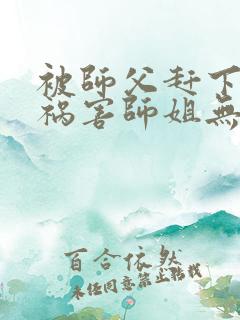 被師父赶下
祸害師姐無
百合依然
未经同意禁止转载